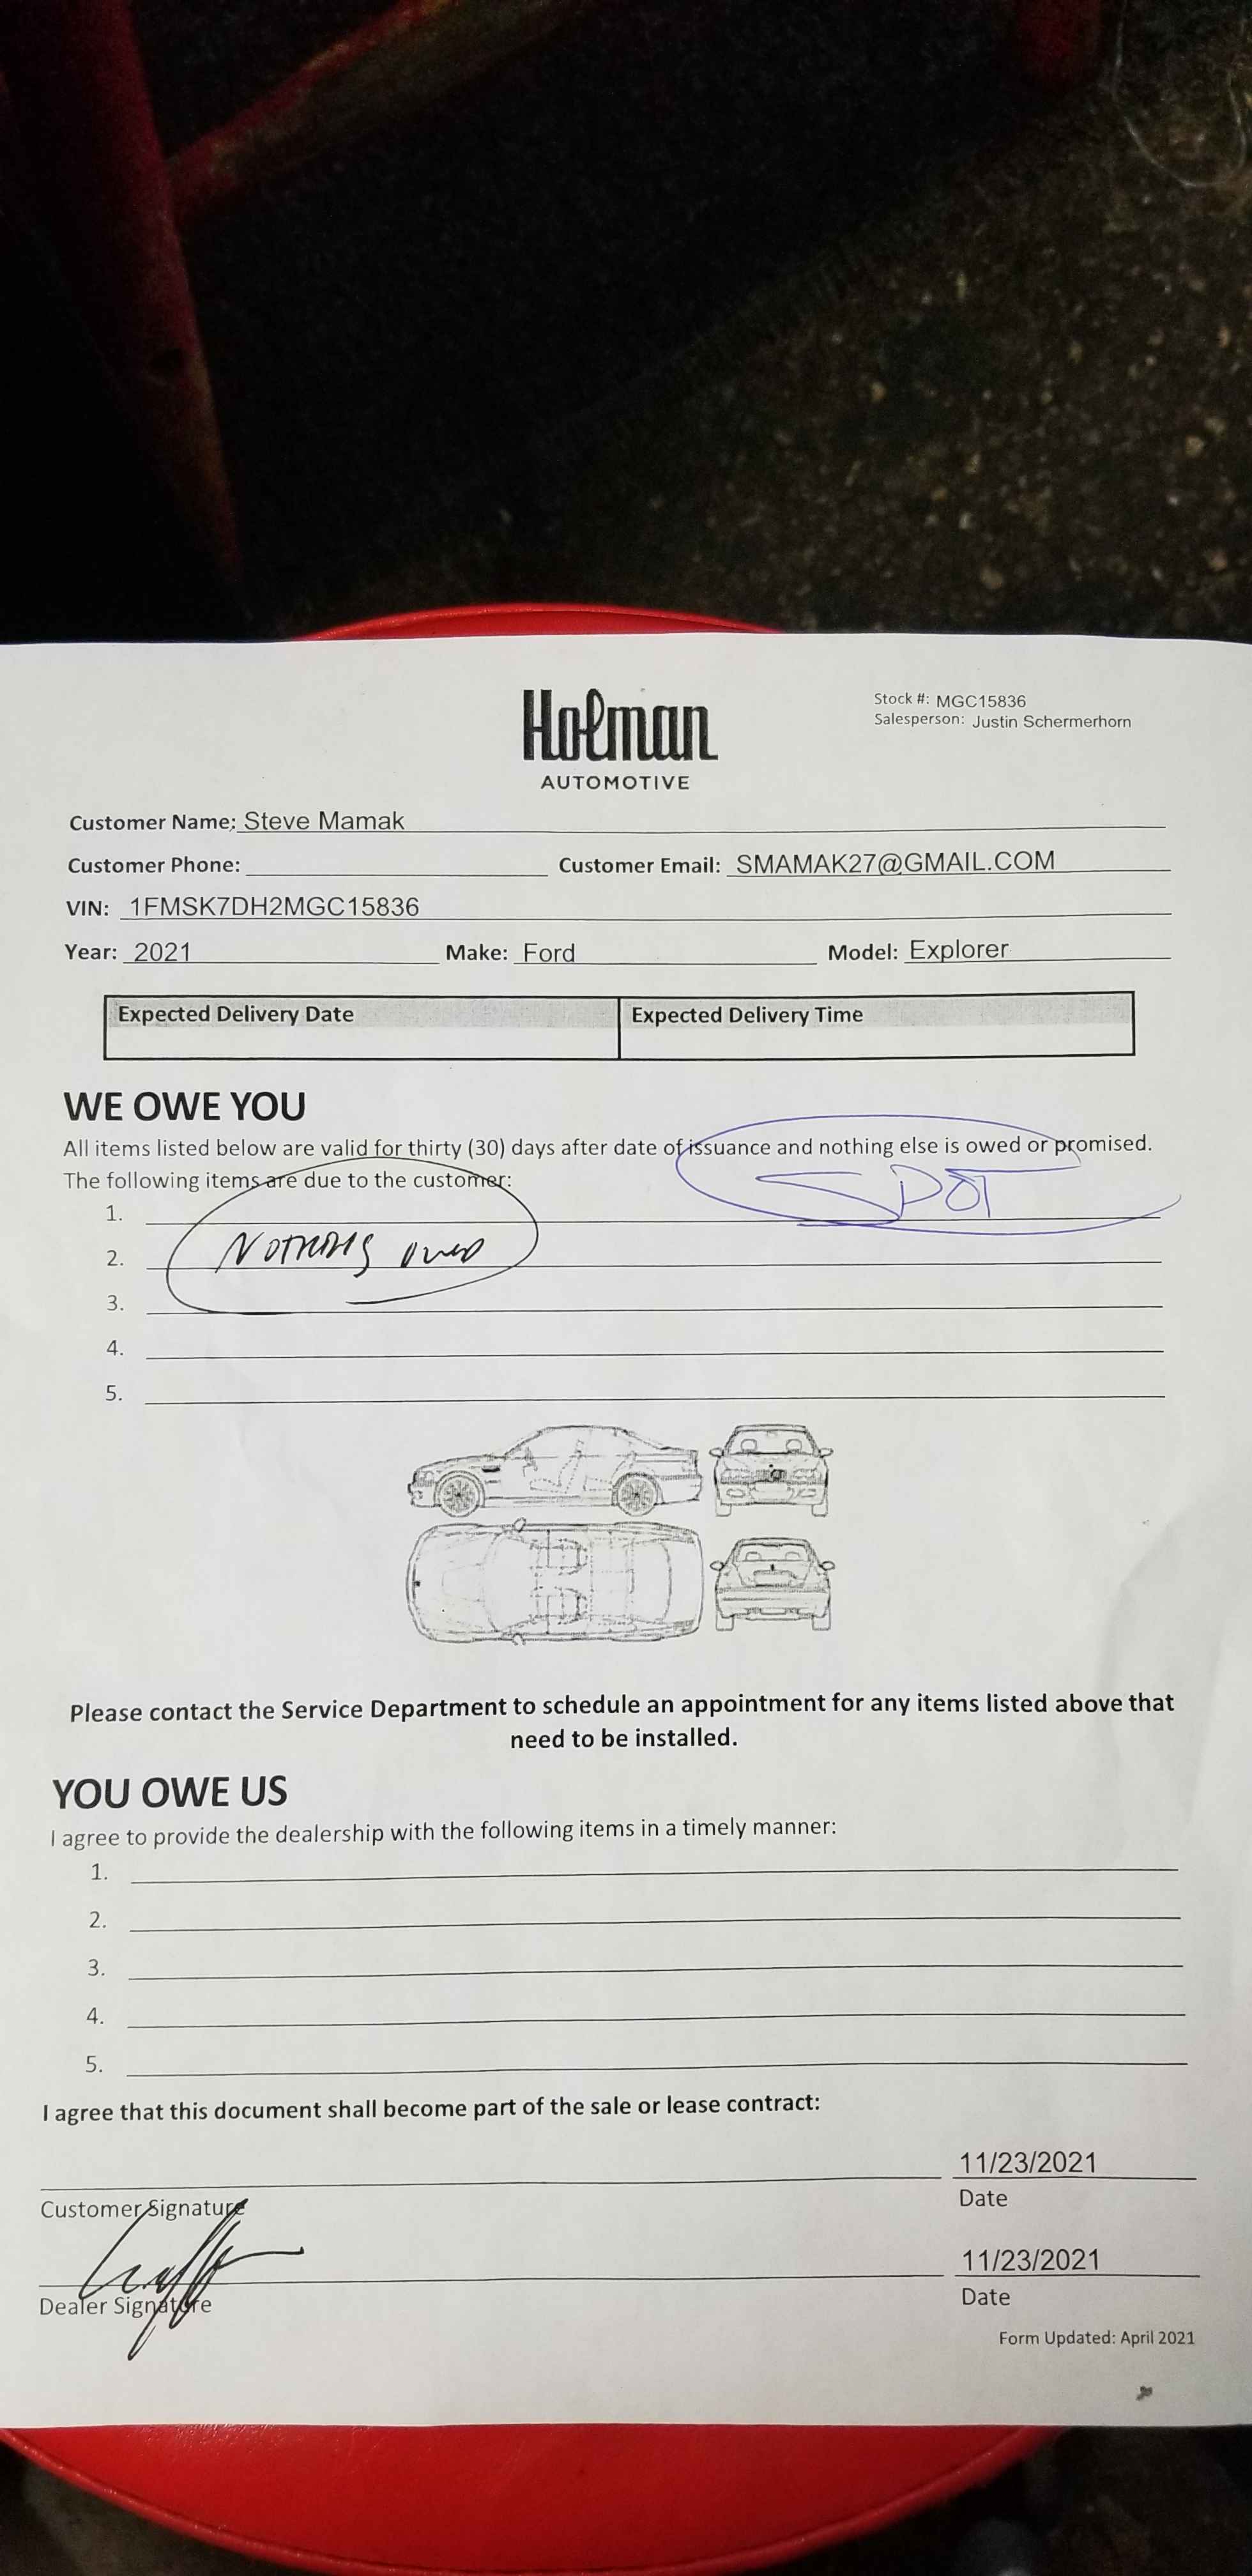 Holman
AUTOMOTIVE
Stock #: MGC15836
Salesperson: Justin Schermerhorn
Customer Name: Steve Mamak
Customer Phone: Customer Email: SMAMAK27@GMAIL.COM
VIN: 1FMSK7DH2MGC15836
Year: 2021 Make: Ford Model: Explorer
Expected Delivery Date Expected Delivery Time
WE OWE YOU
All items listed below are valid for thirty (30) days after date of issuance and nothing else is owed or promised.
The following items are due to the customer:
SPOT
1.
2. NOTHING OWED
3.
4.
5.
Please contact the Service Department to schedule an appointment for any items listed above that
need to be installed.
YOU OWE US
I agree to provide the dealership with the following items in a timely manner:
1.
2.
3.
4.
5.
I agree that this document shall become part of the sale or lease contract:
11/23/2021
Customer Signature Date
11/23/2021
Dealer Signature Date
Form Updated: April 2021